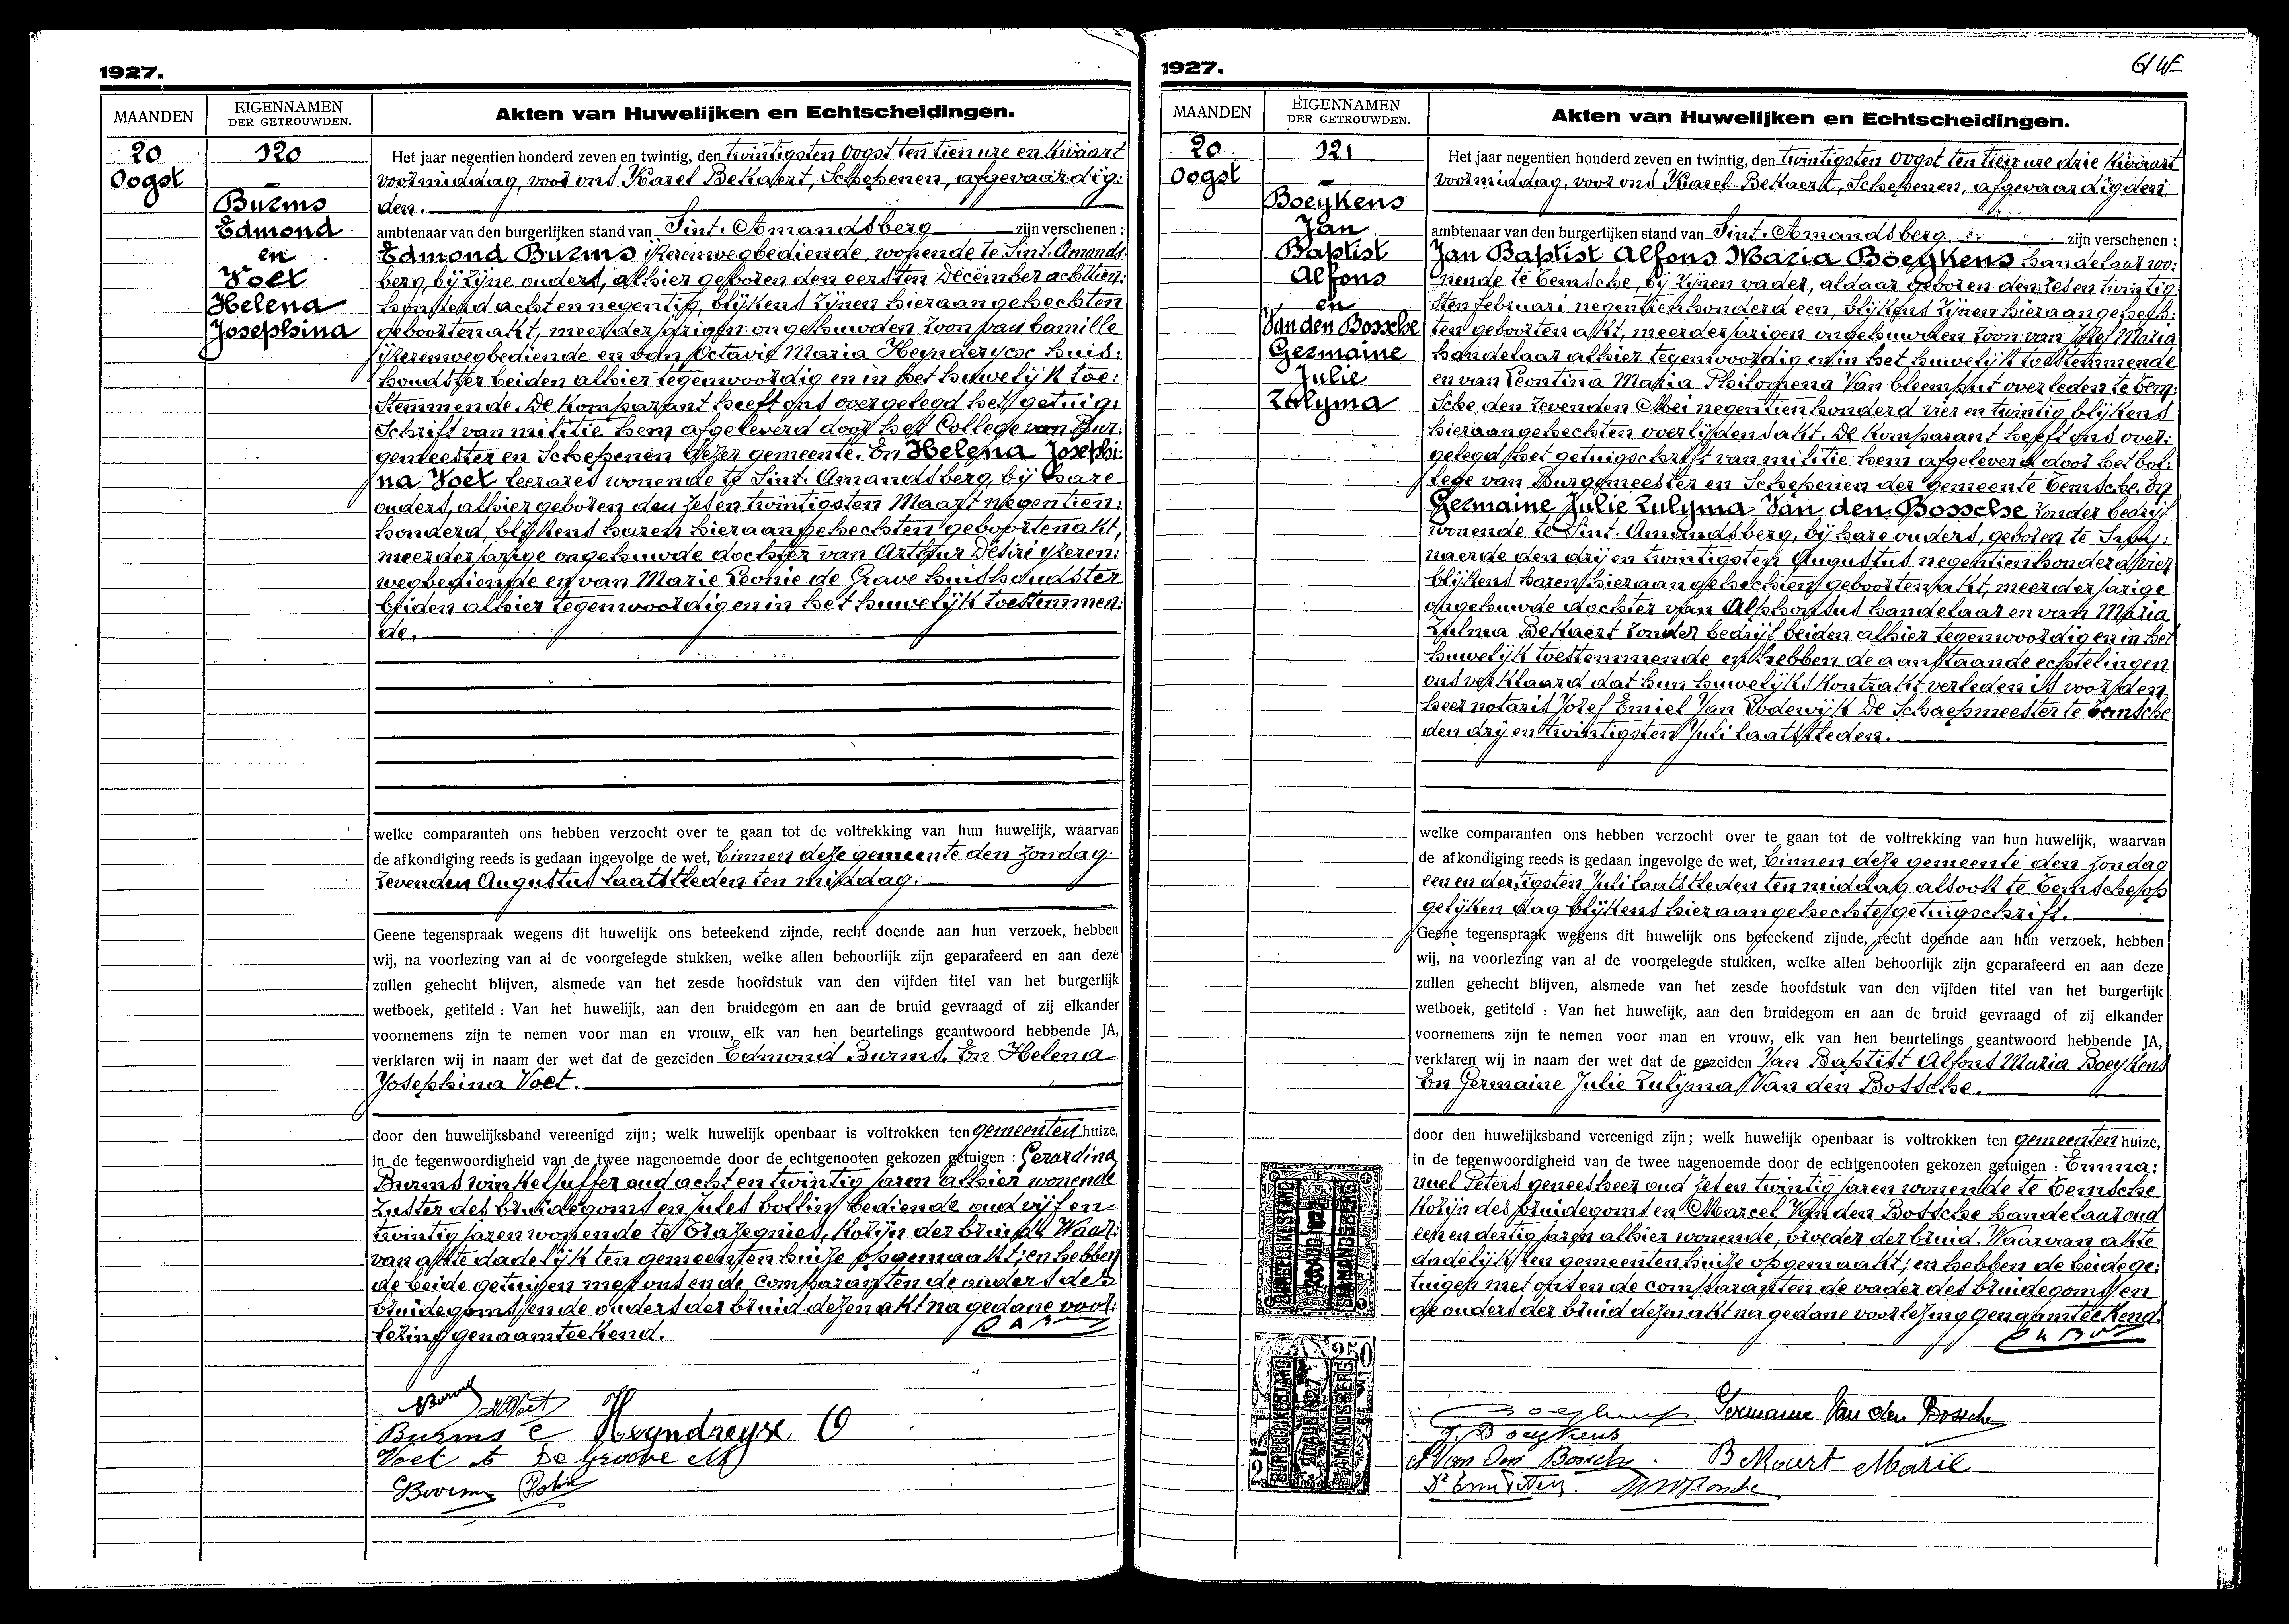 1927.
MAANDEN
EIGENNAMEN
DER GETROUWDEN.
Akten van Huwelijken en Echtscheidingen.
20
Oogst
120
Burms
Edmond
en
Voet
Helena
Josephina
Het jaar negentien honderd zeven en twintig, den twintigsten Oogst ten tien ure en kwaart
voormiddag, voor ons Karel Bekaert, Schepenen, afgevaardig:
den.
ambtenaar van den burgerlijken stand van Sint. Amandsberg zijn verschenen :
Edmond Burms ijzerenwegbediende, wonende te Sint. Amands:
berg bij zijne ouders, alhier geboren den eersten December achttien:
honderd acht en negentig, blijkens zijnen hieraangehechten
geboortenakt, meerderjarigen ongehuwden zoon van Camille
ijzerenwegbediende en van Octavie Maria Heynderycx huis:
houdster beiden alhier tegenwoordig en in het huwelijk toe:
stemmende. De komparant heeft ons overgelegd het getuig:
schrift van militie hem afgeleverd door het College van Bur:
gemeester en Schepenen dezer gemeente. En Helena Josephi:
na Voet leerares wonende te Sint. Amandsberg, bij hare
ouders, alhier geboren den zes en twintigsten Maart negentien:
honderd, blijkens haren hieraangehechten geboortenakt,
meerderjarige ongehuwde dochter van Arthur Désiré ijzeren:
wegbediende en van Marie Leonie de Grave huishoudster
beiden alhier tegenwoordig en in het huwelijk toestemmen:
de.
welke comparanten ons hebben verzocht over te gaan tot de voltrekking van hun huwelijk, waarvan
de afkondiging reeds is gedaan ingevolge de wet, binnen deze gemeente den zondag
zevenden Augustus laatstleden ten middag.
Geene tegenspraak wegens dit huwelijk ons beteekend zijnde, recht doende aan hun verzoek, hebben
wij, na voorlezing van al de voorgelegde stukken, welke allen behoorlijk zijn geparafeerd en aan deze
zullen gehecht blijven, alsmede van het zesde hoofdstuk van den vijfden titel van het burgerlijk
wetboek, getiteld : Van het huwelijk, aan den bruidegom en aan de bruid gevraagd of zij elkander
voornemens zijn te nemen voor man en vrouw, elk van hen beurtelings geantwoord hebbende JA,
verklaren wij in naam der wet dat de gezeiden Edmond Burms. En Helena
Josephina Voet.
door den huwelijksband vereenigd zijn; welk huwelijk openbaar is voltrokken ten gemeenten huize,
in de tegenwoordigheid van de twee nagenoemde door de echtgenooten gekozen getuigen : Gerardina
Burms winkeljuffer oud acht en twintig jaren alhier wonende
zuster des bruidegoms en Jules Collin bediende oud vijf en
twintig jaren wonende te Trazegnies, kozijn der bruid. Waar:
van akte dadelijk ten gemeentenhuize opgemaakt; en hebben
de beide getuigen met ons en de comparanten de ouders des
bruidegoms en de ouders der bruid dezen akt na gedane voor:
lezing genaamteekend.
Burms HVoet
Burms C Heyndrycx O
Voet A De Groove M
1927.
MAANDEN
EIGENNAMEN
DER GETROUWDEN.
Akten van Huwelijken en Echtscheidingen.
20
Oogst
121
Boeykens
Jan
Baptist
Alfons
en
Van den Bossche
Germaine
Julie
Zulyma
Het jaar negentien honderd zeven en twintig, den twintigsten Oogst ten tien ure drie kwaart
voormiddag, voor ons Karel Bekaert, Schepenen, afgevaardigden
ambtenaar van den burgerlijken stand van Sint. Amandsberg zijn verschenen :
Jan Baptist Alfons Maria Boeykens handelaar wo:
nende te Temsche, bij zijnen vader, aldaar geboren den zes en twintig:
sten februari negentienhonderd een, blijkens zijnen hieraangehech:
ten geboortenakt, meerderjarigen ongehuwden zoon van Jozef Maria
handelaar alhier tegenwoordig en in het huwelijk toestemmende
en van Leontina Maria Philomena Van Cleemput overleden te Tem:
sche den zevenden Mei negentienhonderd vier en twintig blijkens
hieraangehechten overlijdensakt. De komparant heeft ons over:
gelegd het getuigschrift van militie hem afgeleverd door het Col:
lege van Burgemeester en Schepenen der gemeente Temsche. En
Germaine Julie Zulyma Van den Bossche zonder bedrijf
wonende te Sint. Amandsberg, bij hare ouders, geboren te
naerde den drij en twintigsten Augustus negentienhonderd vier
blijkens haren hieraangehechten geboortenakt, meerderjarige
ongehuwde dochter van Alphonsus handelaar en van Maria
Zulma Bekaert zonder bedrijf beiden alhier tegenwoordig en in het
huwelijk toestemmende en hebben de aanstaande echtelingen
ons verklaard dat hun huwelijkskontrakt verleden is voor den
heer notaris Jozef Emiel Jan Lodewijk De Schaepmeester te Temsche
den drij en twintigsten Juli laatstleden.
welke comparanten ons hebben verzocht over te gaan tot de voltrekking van hun huwelijk, waarvan
de afkondiging reeds is gedaan ingevolge de wet, binnen deze gemeente den zondag
een en dertigsten Juli laatstleden ten middag alsook te Temsche op
gelijken dag blijkens hieraangehechte getuigschrift.
Geene tegenspraak wegens dit huwelijk ons beteekend zijnde, recht doende aan hun verzoek, hebben
wij, na voorlezing van al de voorgelegde stukken, welke allen behoorlijk zijn geparafeerd en aan deze
zullen gehecht blijven, alsmede van het zesde hoofdstuk van den vijfden titel van het burgerlijk
wetboek, getiteld : Van het huwelijk, aan den bruidegom en aan de bruid gevraagd of zij elkander
voornemens zijn te nemen voor man en vrouw, elk van hen beurtelings geantwoord hebbende JA,
verklaren wij in naam der wet dat de gezeiden Jan Baptist Alfons Maria Boeykens
En Germaine Julie Zulyma Van den Bossche.
door den huwelijksband vereenigd zijn; welk huwelijk openbaar is voltrokken ten gemeenten huize,
in de tegenwoordigheid van de twee nagenoemde door de echtgenooten gekozen getuigen : Emma:
nuel Peters geneesheer oud zes en twintig jaren wonende te Temsche
kozijn des bruidegoms en Marcel Van den Bossche handelaar oud
een en dertig jaren alhier wonende, broeder der bruid. Waarvan akte
dadelijk ten gemeentenhuize opgemaakt; en hebben de beide ge:
tuigen met ons en de comparanten de vader des bruidegoms en
de ouders der bruid dezen akt na gedane voorlezing genaamteekend.
BURGERLIJKE STAND
20 AUG 1927
ST AMANDSBERG
250
BURGERLIJKE STAND
20 AUG 1927
ST AMANDSBERG
Germaine Van den Bossche
J. Boeykens
A Van Den Bossche Bekaert Marie